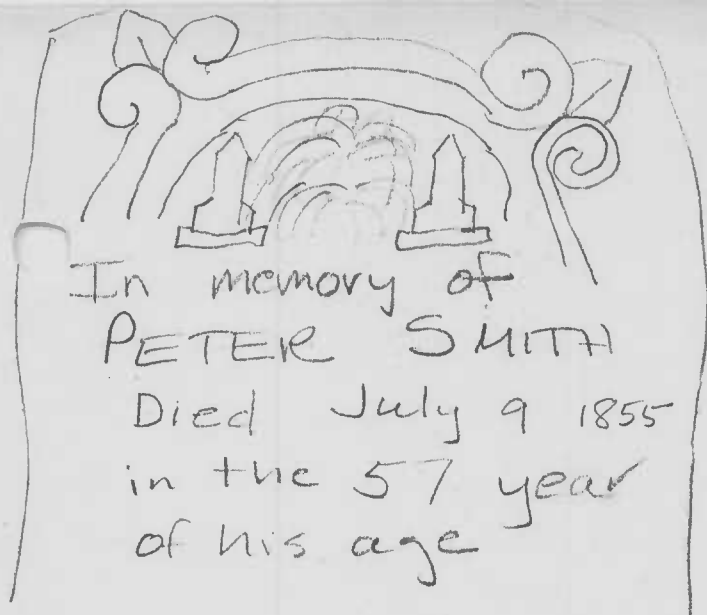 In memory of
PETER SMITH
Died July 9 1855
in the 57 year
of his age